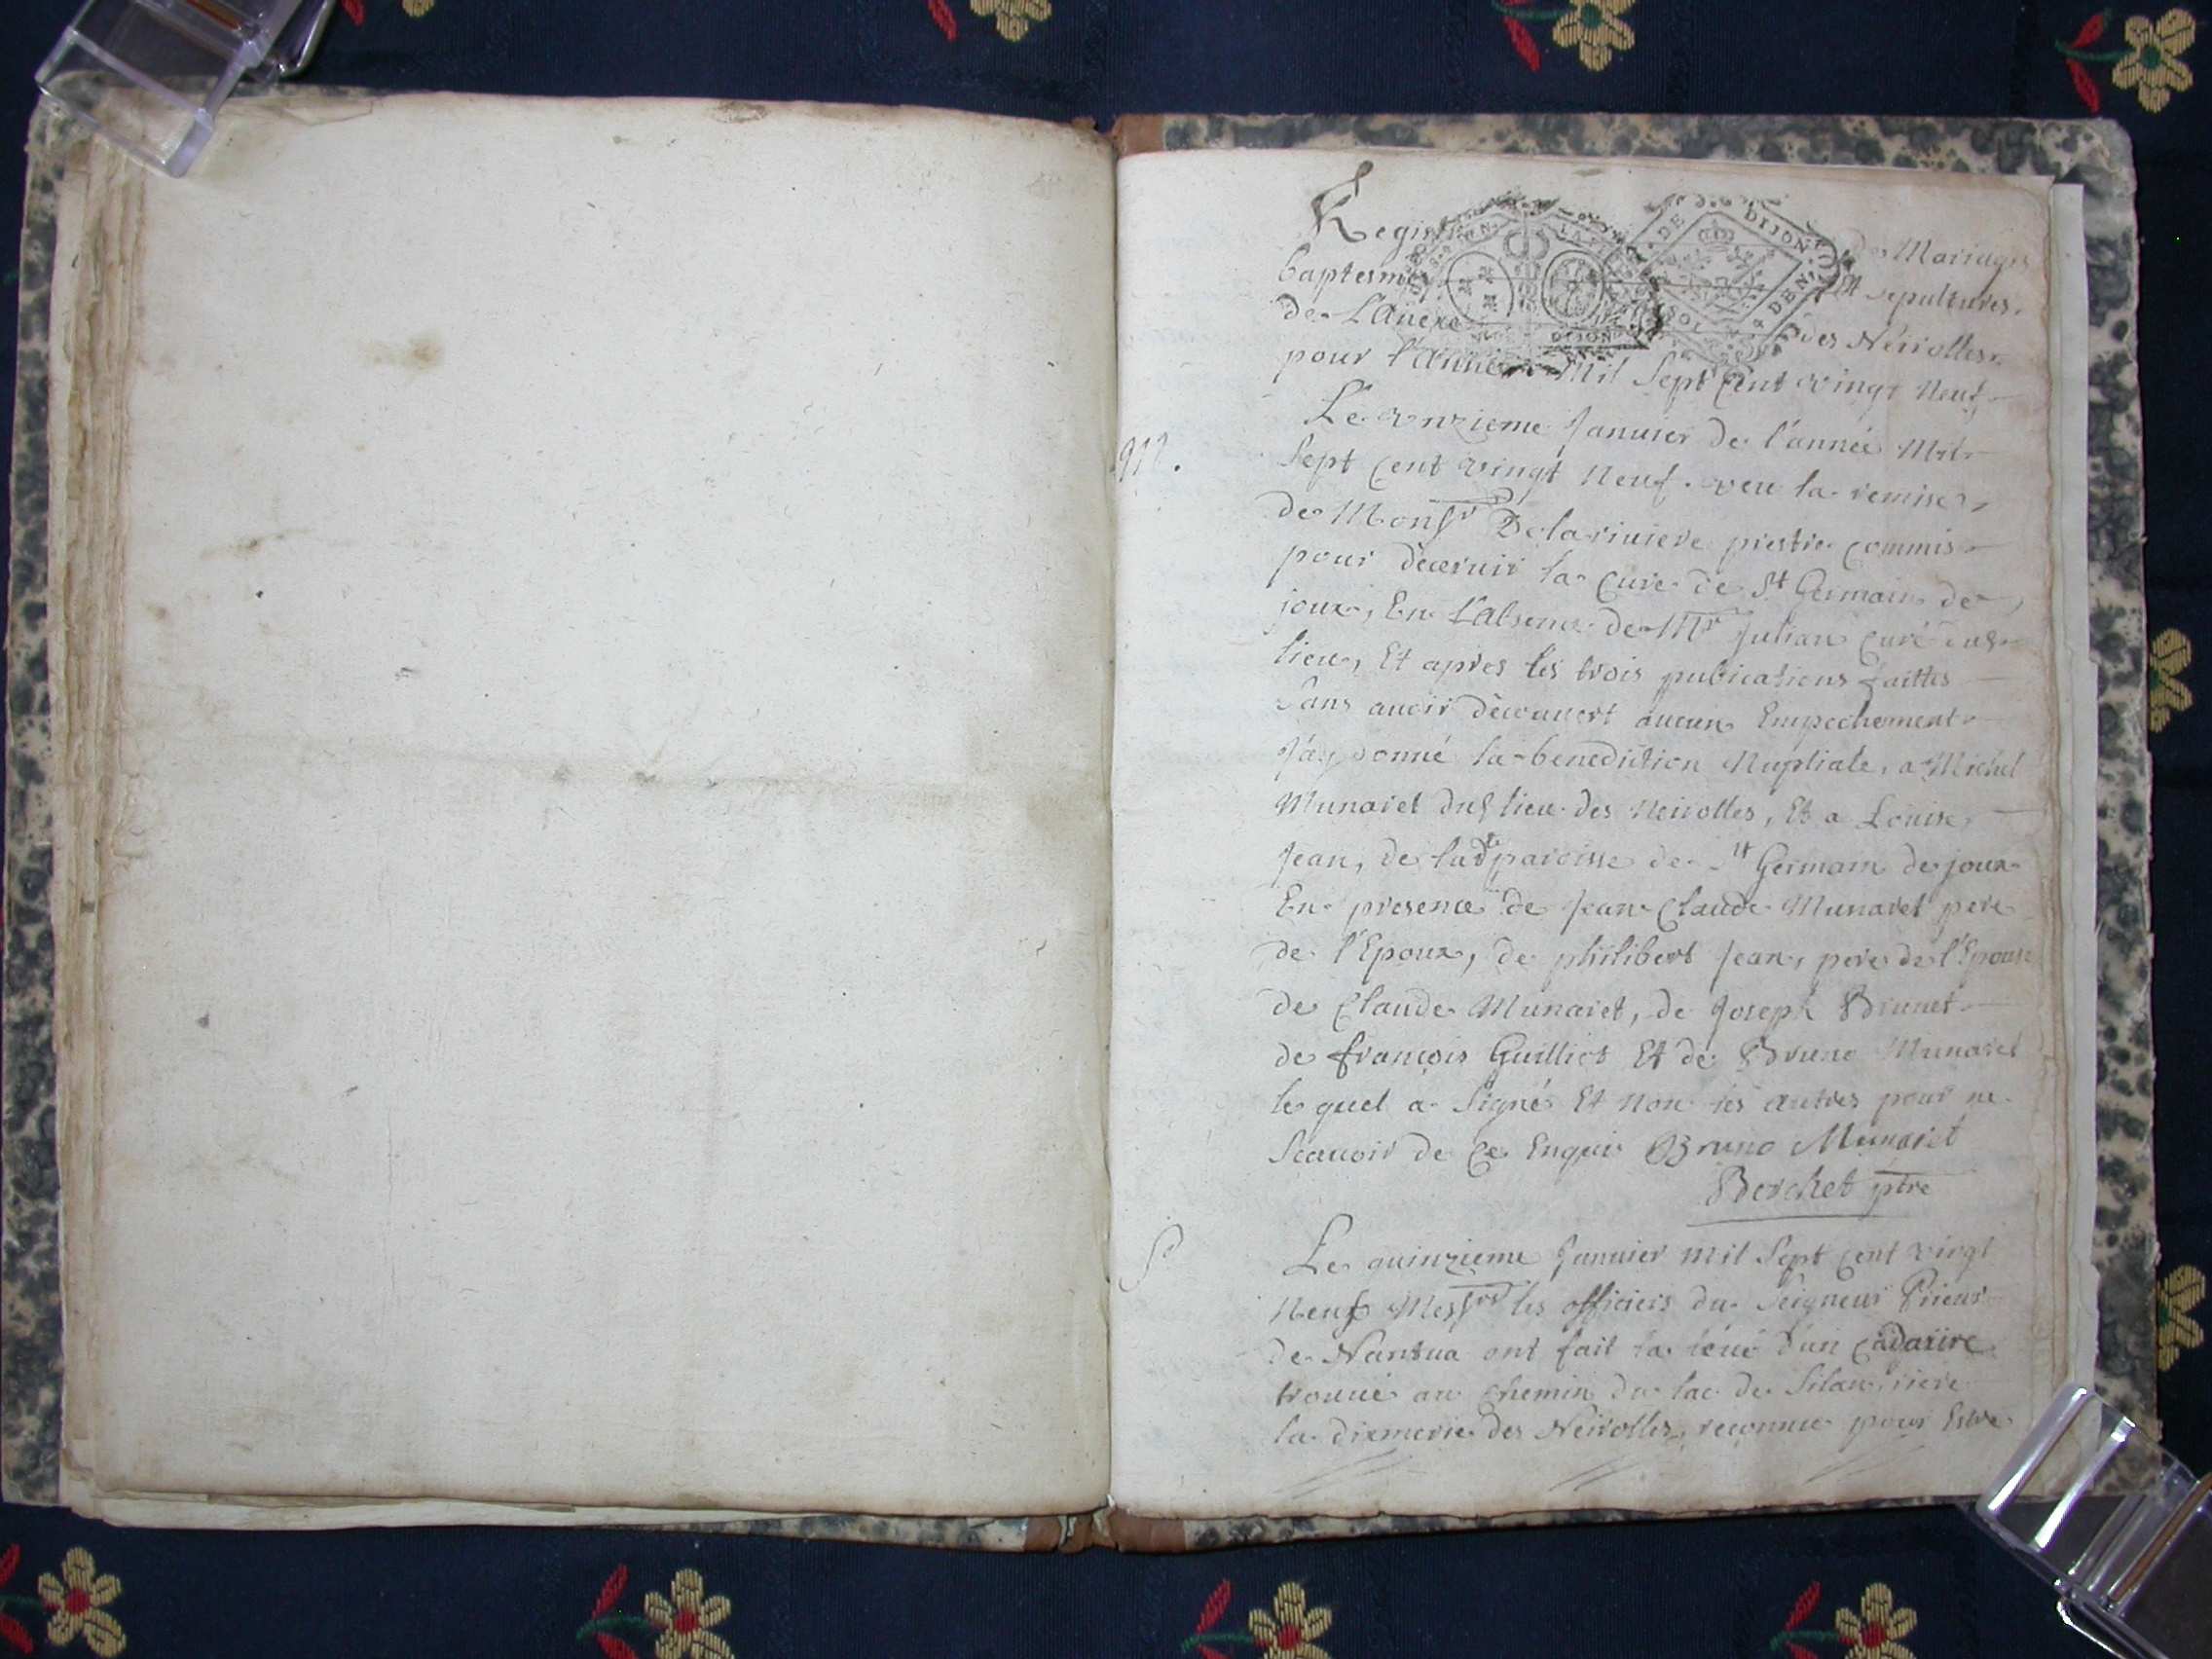 Registre des Mariages
baptesmes Et sepultures
de L'Anexe des Neirolles
pour l'année Mil Sept Cent vingt Neuf
Le onzieme Januier de l'année Mil
M. Sept Cent vingt Neuf. veu la remise
de Monsr Delariuiere prestre commis
pour deceruir la Cure de St Germain de
joux, En L'absence de Mr Julian Curé duds
lieu, Et apres les trois publications faittes
Sans auoir decouuert aucun Empechement
J'ay donné la benediction Nuptiale, a Michel
Munaret duds lieu des Neirolles, Et a Louise
Jean, de ladte paroisse de St Germain de joux
En presence de Jean Claude Munaret pere
de l'Epoux, de philibert Jean, pere de l'Epouse
de Claude Munaret, de Joseph Brunet
de françois Guilliot Et de Bruno Munaret
le quel a Signé Et non les autres pour ne
Scauoir de Ce Enquis Bruno Munaret
Berchet ptre
S Le quinzieme Januier mil Sept Cent vingt
Neuf Messrs les officiers du Seigneur Prieur
de Nantua ont fait la leué d'un Cadavre
trouué au Chemin du lac de Silan, riere
la dixmerie des Neirolles, reconnue pour Estre
DE DIJON
DIJON